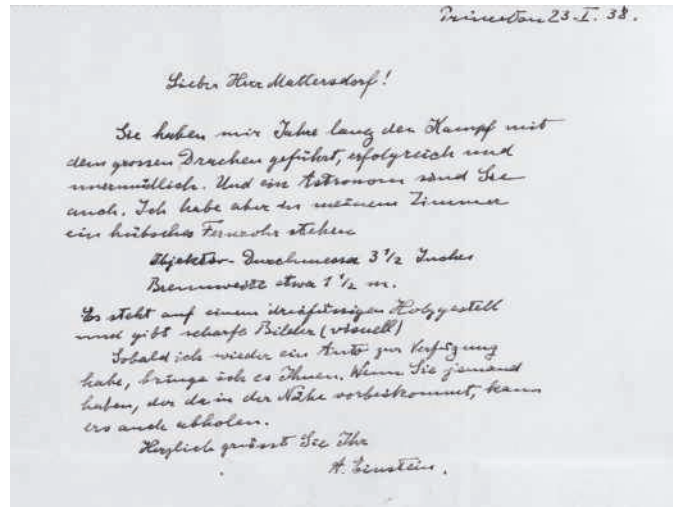 Princeton 23. I. 38.
Lieber Herr Mattersdorf!
Sie haben mir Jahre lang den Kampf mit
dem grossen Drachen geführt, erfolgreich und
unermüdlich. Und ein Astronom sind Sie
auch. Ich habe aber in meinem Zimmer
ein hübsches Fernrohr stehen
Objektiv-Durchmesser 3 1/2 Inches
Brennweite etwa 1 1/2 m.
Es steht auf einem dreifüssigen Holzgestell
und gibt scharfe Bilder (visuell)
Sobald ich wieder ein Auto zur Verfügung
habe, bringe ich es Ihnen. Wenn Sie jemand
haben, der da in der Nähe vorbeikommt, kann
ers auch abholen.
Herzlich grüsst Sie Ihr
A. Einstein.